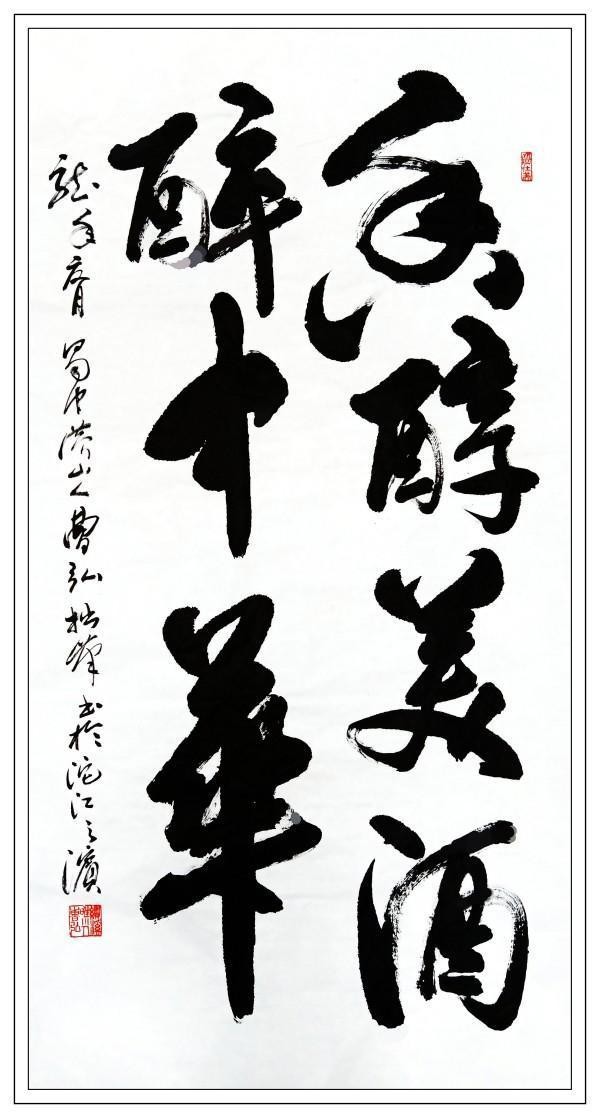 香醇美酒
醉中華
龍年 蜀中 山人曹弘拙筆書於沱江之濱